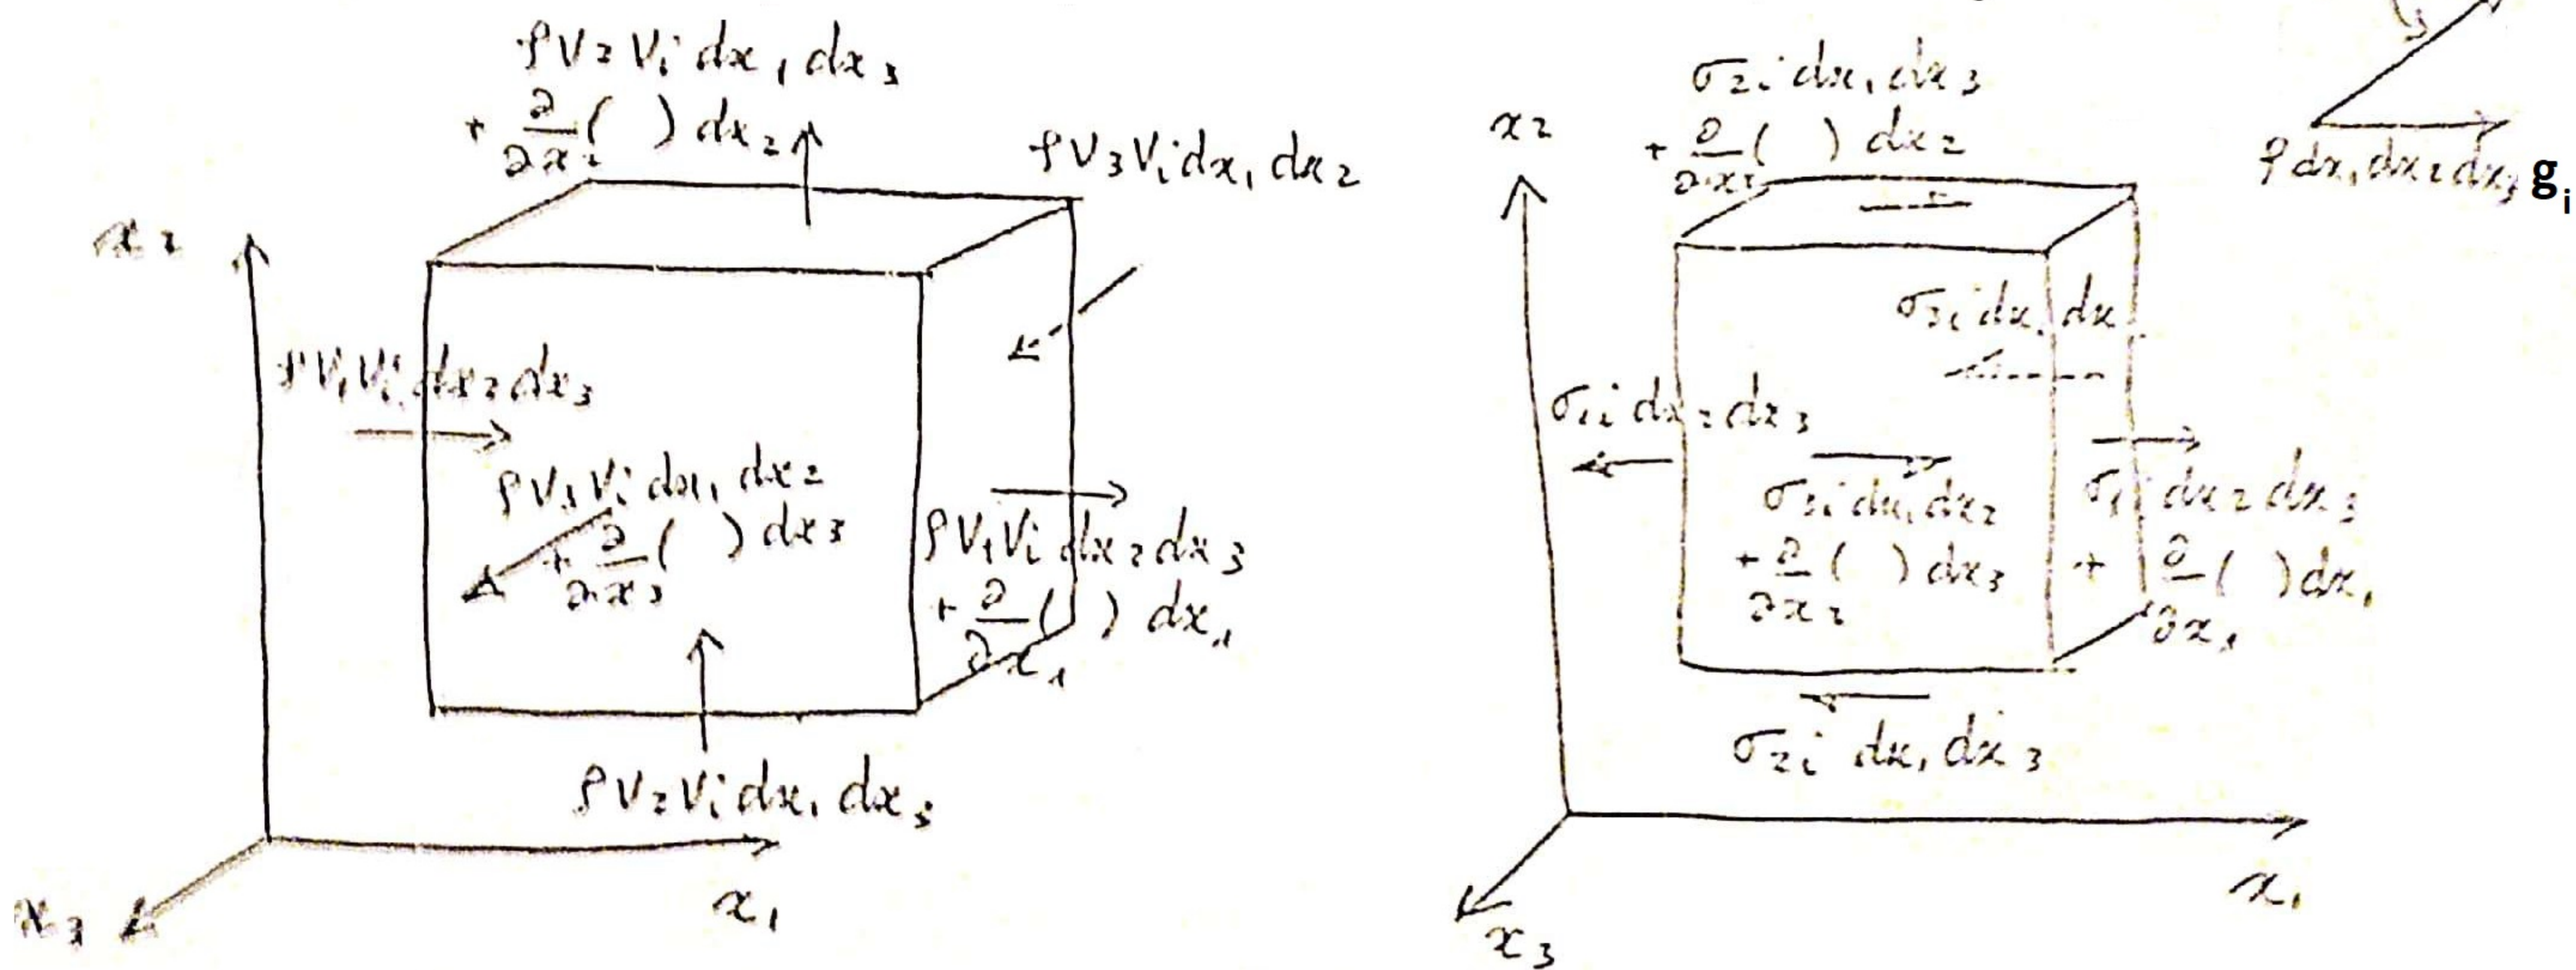 ρV₂Vᵢdx₁dx₃
+ ∂/∂x₂( )dx₂
ρV₃Vᵢdx₁dx₂
x₂
ρV₁Vᵢdx₂dx₃
ρV₃Vᵢdx₁dx₂
+ ∂/∂x₃( )dx₃
ρV₁Vᵢdx₂dx₃
+ ∂/∂x₁( )dx₁
ρV₂Vᵢdx₁dx₃
x₁
x₃
σ₂ᵢdx₁dx₃
+ ∂/∂x₂( )dx₂
x₂
ρdx₁dx₂dx₃ gᵢ
σ₃ᵢdx₁dx
σ₁ᵢdx₂dx₃
σ₃ᵢdx₁dx₂
+ ∂/∂x₂( )dx₃
σ₁ᵢdx₂dx₃
+ ∂/∂x₁( )dx₁
σ₂ᵢdx₁dx₃
x₁
x₃